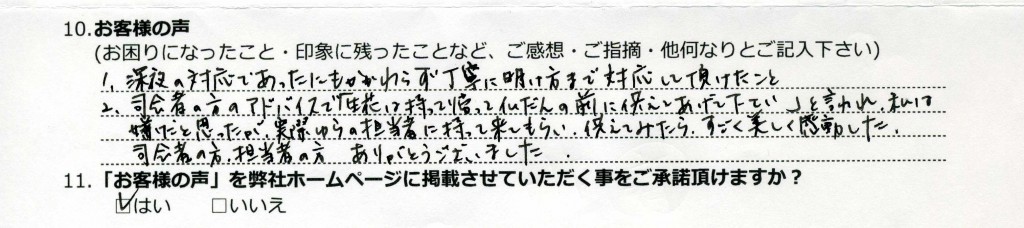 10.お客様の声
(お困りになったこと・印象に残ったことなど、ご感想・ご指摘・他何なりとご記入下さい)
1、深夜の対応であったにもかかわらず丁寧に明け方まで対応して頂けたこと
2、司会者の方のアドバイスで「生花は持って帰って仏だんの前に供えてあげて下さい」と言われ、私は
嫌だと思ったが、実際 の担当者に持って来てもらい、供えてみたら、すごく美しく感動した。
司会者の方、担当者の方 ありがとうございました。
11.「お客様の声」を弊社ホームページに掲載させていただく事をご承諾頂けますか？
☑はい □いいえ